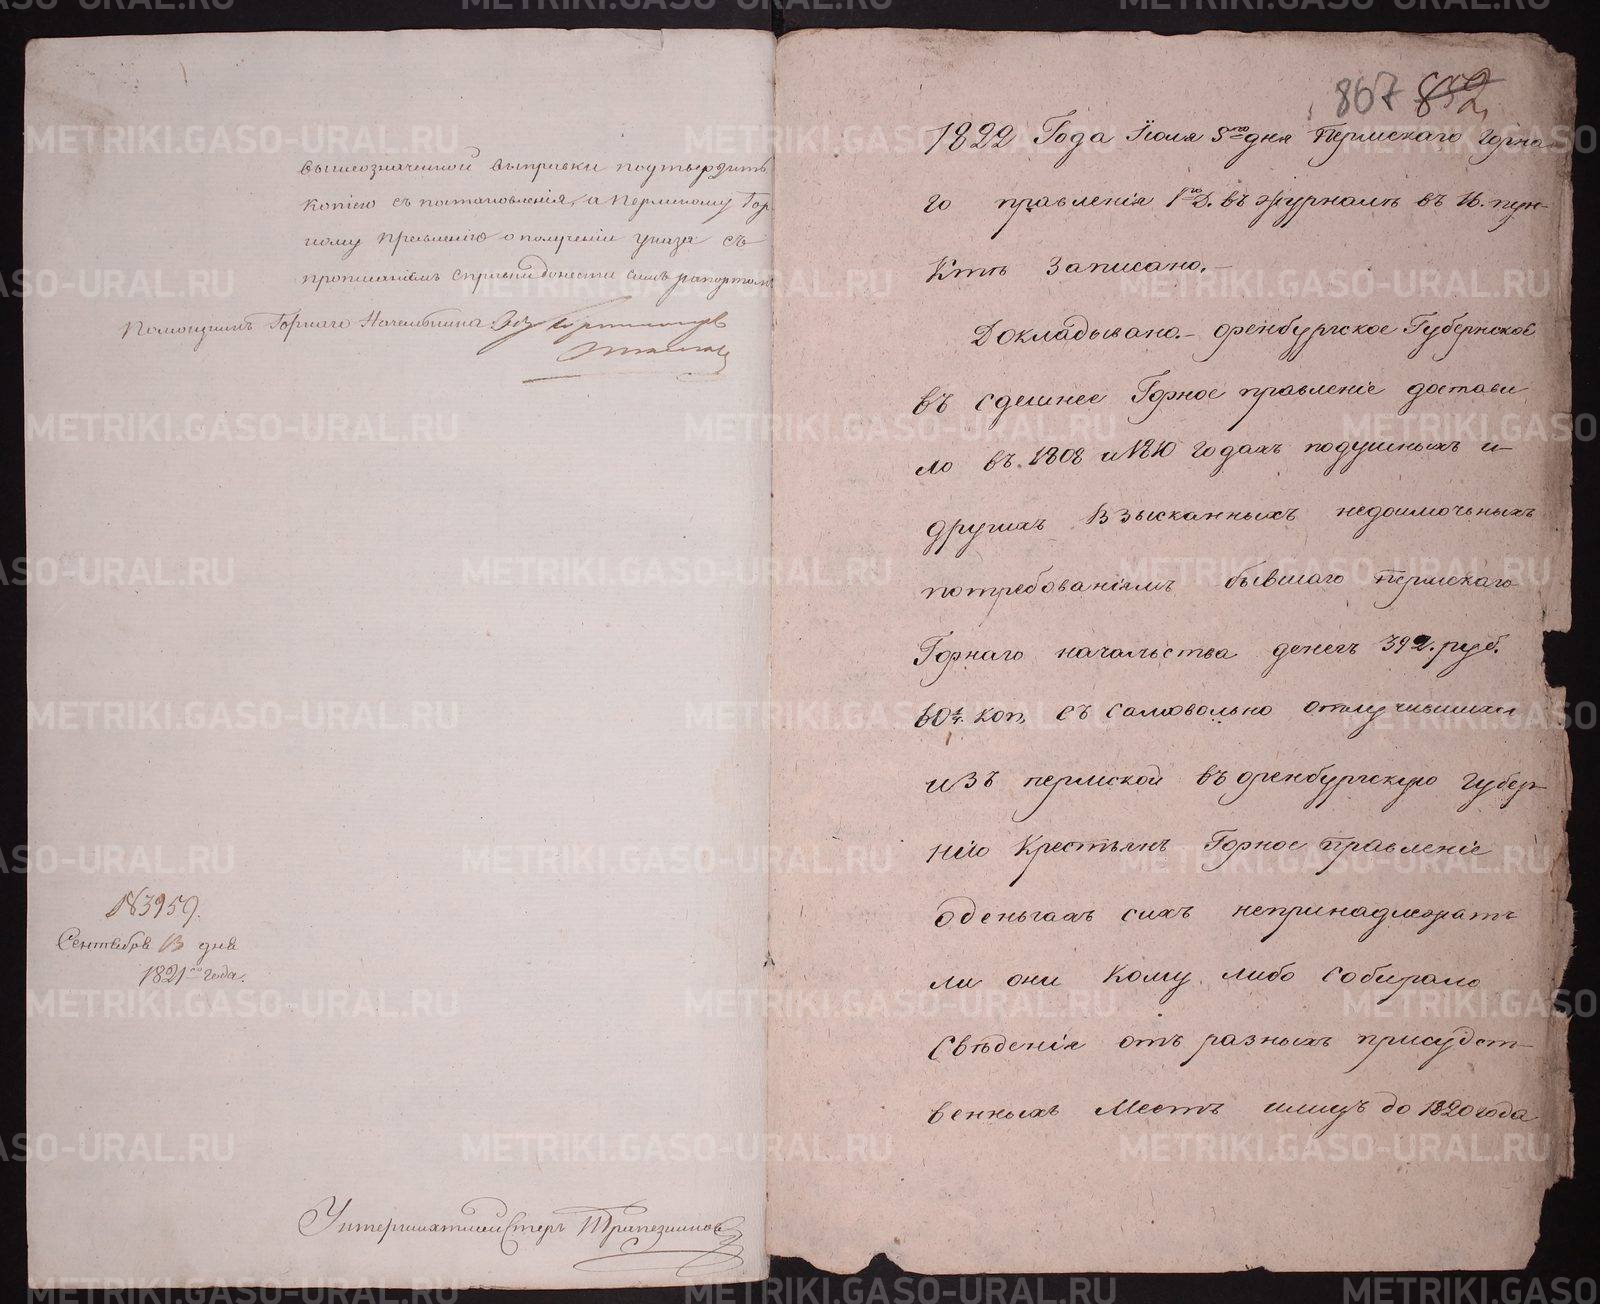 вышеозначенной выправки подтвердить
копіею съ постановленія, а Пермскому Гор
ному Правленію о полученіи указа съ
прописаніемъ справки донести симъ рапортомъ
Помощникъ Горнаго Начальника
№ 3959.
Сентября 13 дня
1821го года.
Унтершихтмейстеръ Трапезниковъ
867 852
1822 Года Іюля 5го дня Пермскаго Горна
го правленія 1го Д. въ журналѣ въ 16. пун-
ктѣ Записано.
Докладывано. – Оренбургское Губернское
въ сдешнее Горное правленіе достави
ло въ 1808 и 1810 годахъ подушныхъ и
другихъ взысканныхъ недоимочныхъ
потребованіямъ бывшаго Пермскаго
Горнаго начальства денегъ 392. руб.
60¼ коп съ самовольно отлучившихся
изъ пермской въ Оренбургскую Губер
нію Крестьянъ Горное Правленіе
оденьгахъ сихъ непринадлежатъ
ли они Кому либо собирало
Свѣденія отъ разныхъ присудст-
венныхъ Местъ илицъ до 1820 года
METRIKI.GASO-URAL.RU